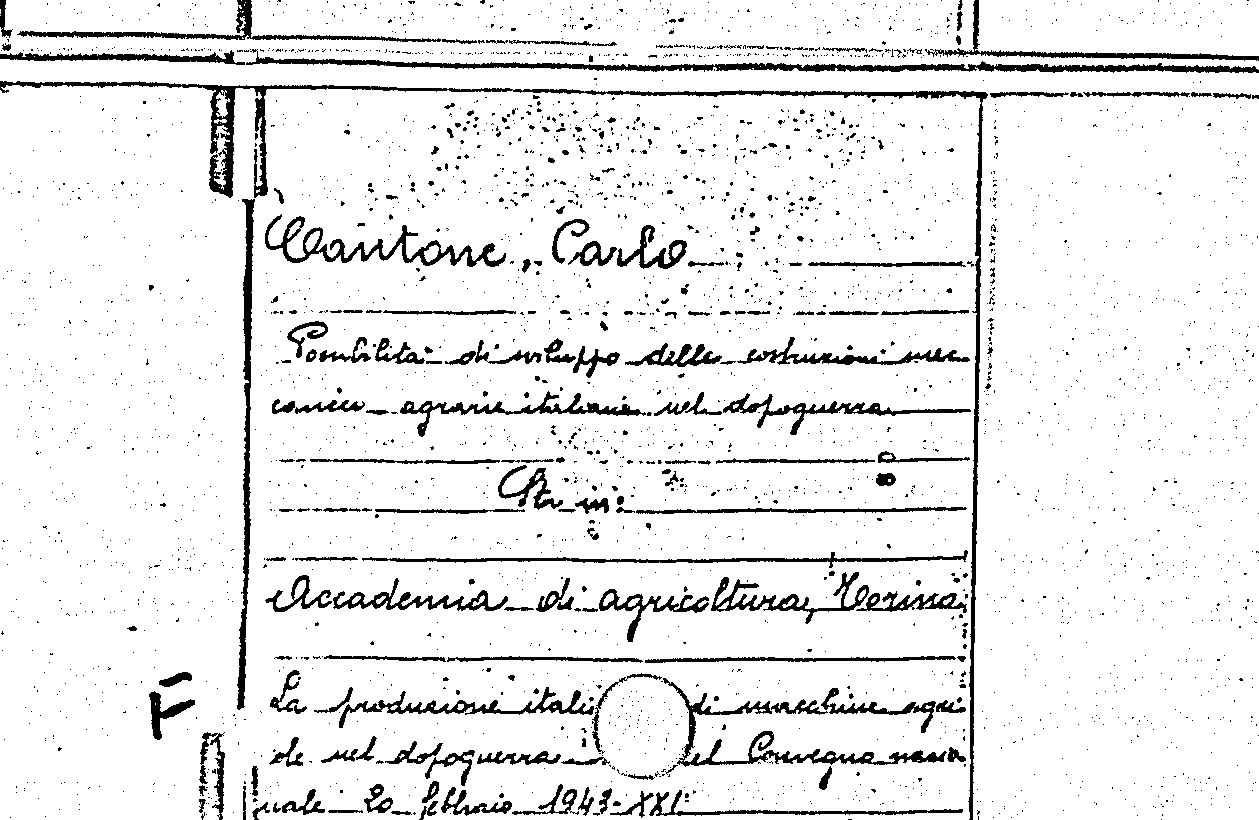 Cantone, Carlo
Possibilità di sviluppo delle costruzioni mec
canico agrarie italiane nel dopoguerra
Sta in:
Accademia di agricoltura, Torino
La produzione itali di macchine agri
ole nel dopoguerra el Convegno nazio
nale 20 febbraio 1943-XXI:
F